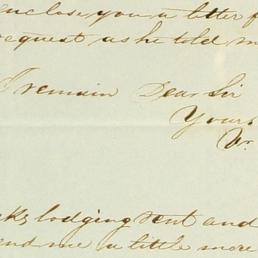 enclose you a letter f
request as he told m
I remain Dear Sir
Yours
W
cks lodging rent and
end me a little more